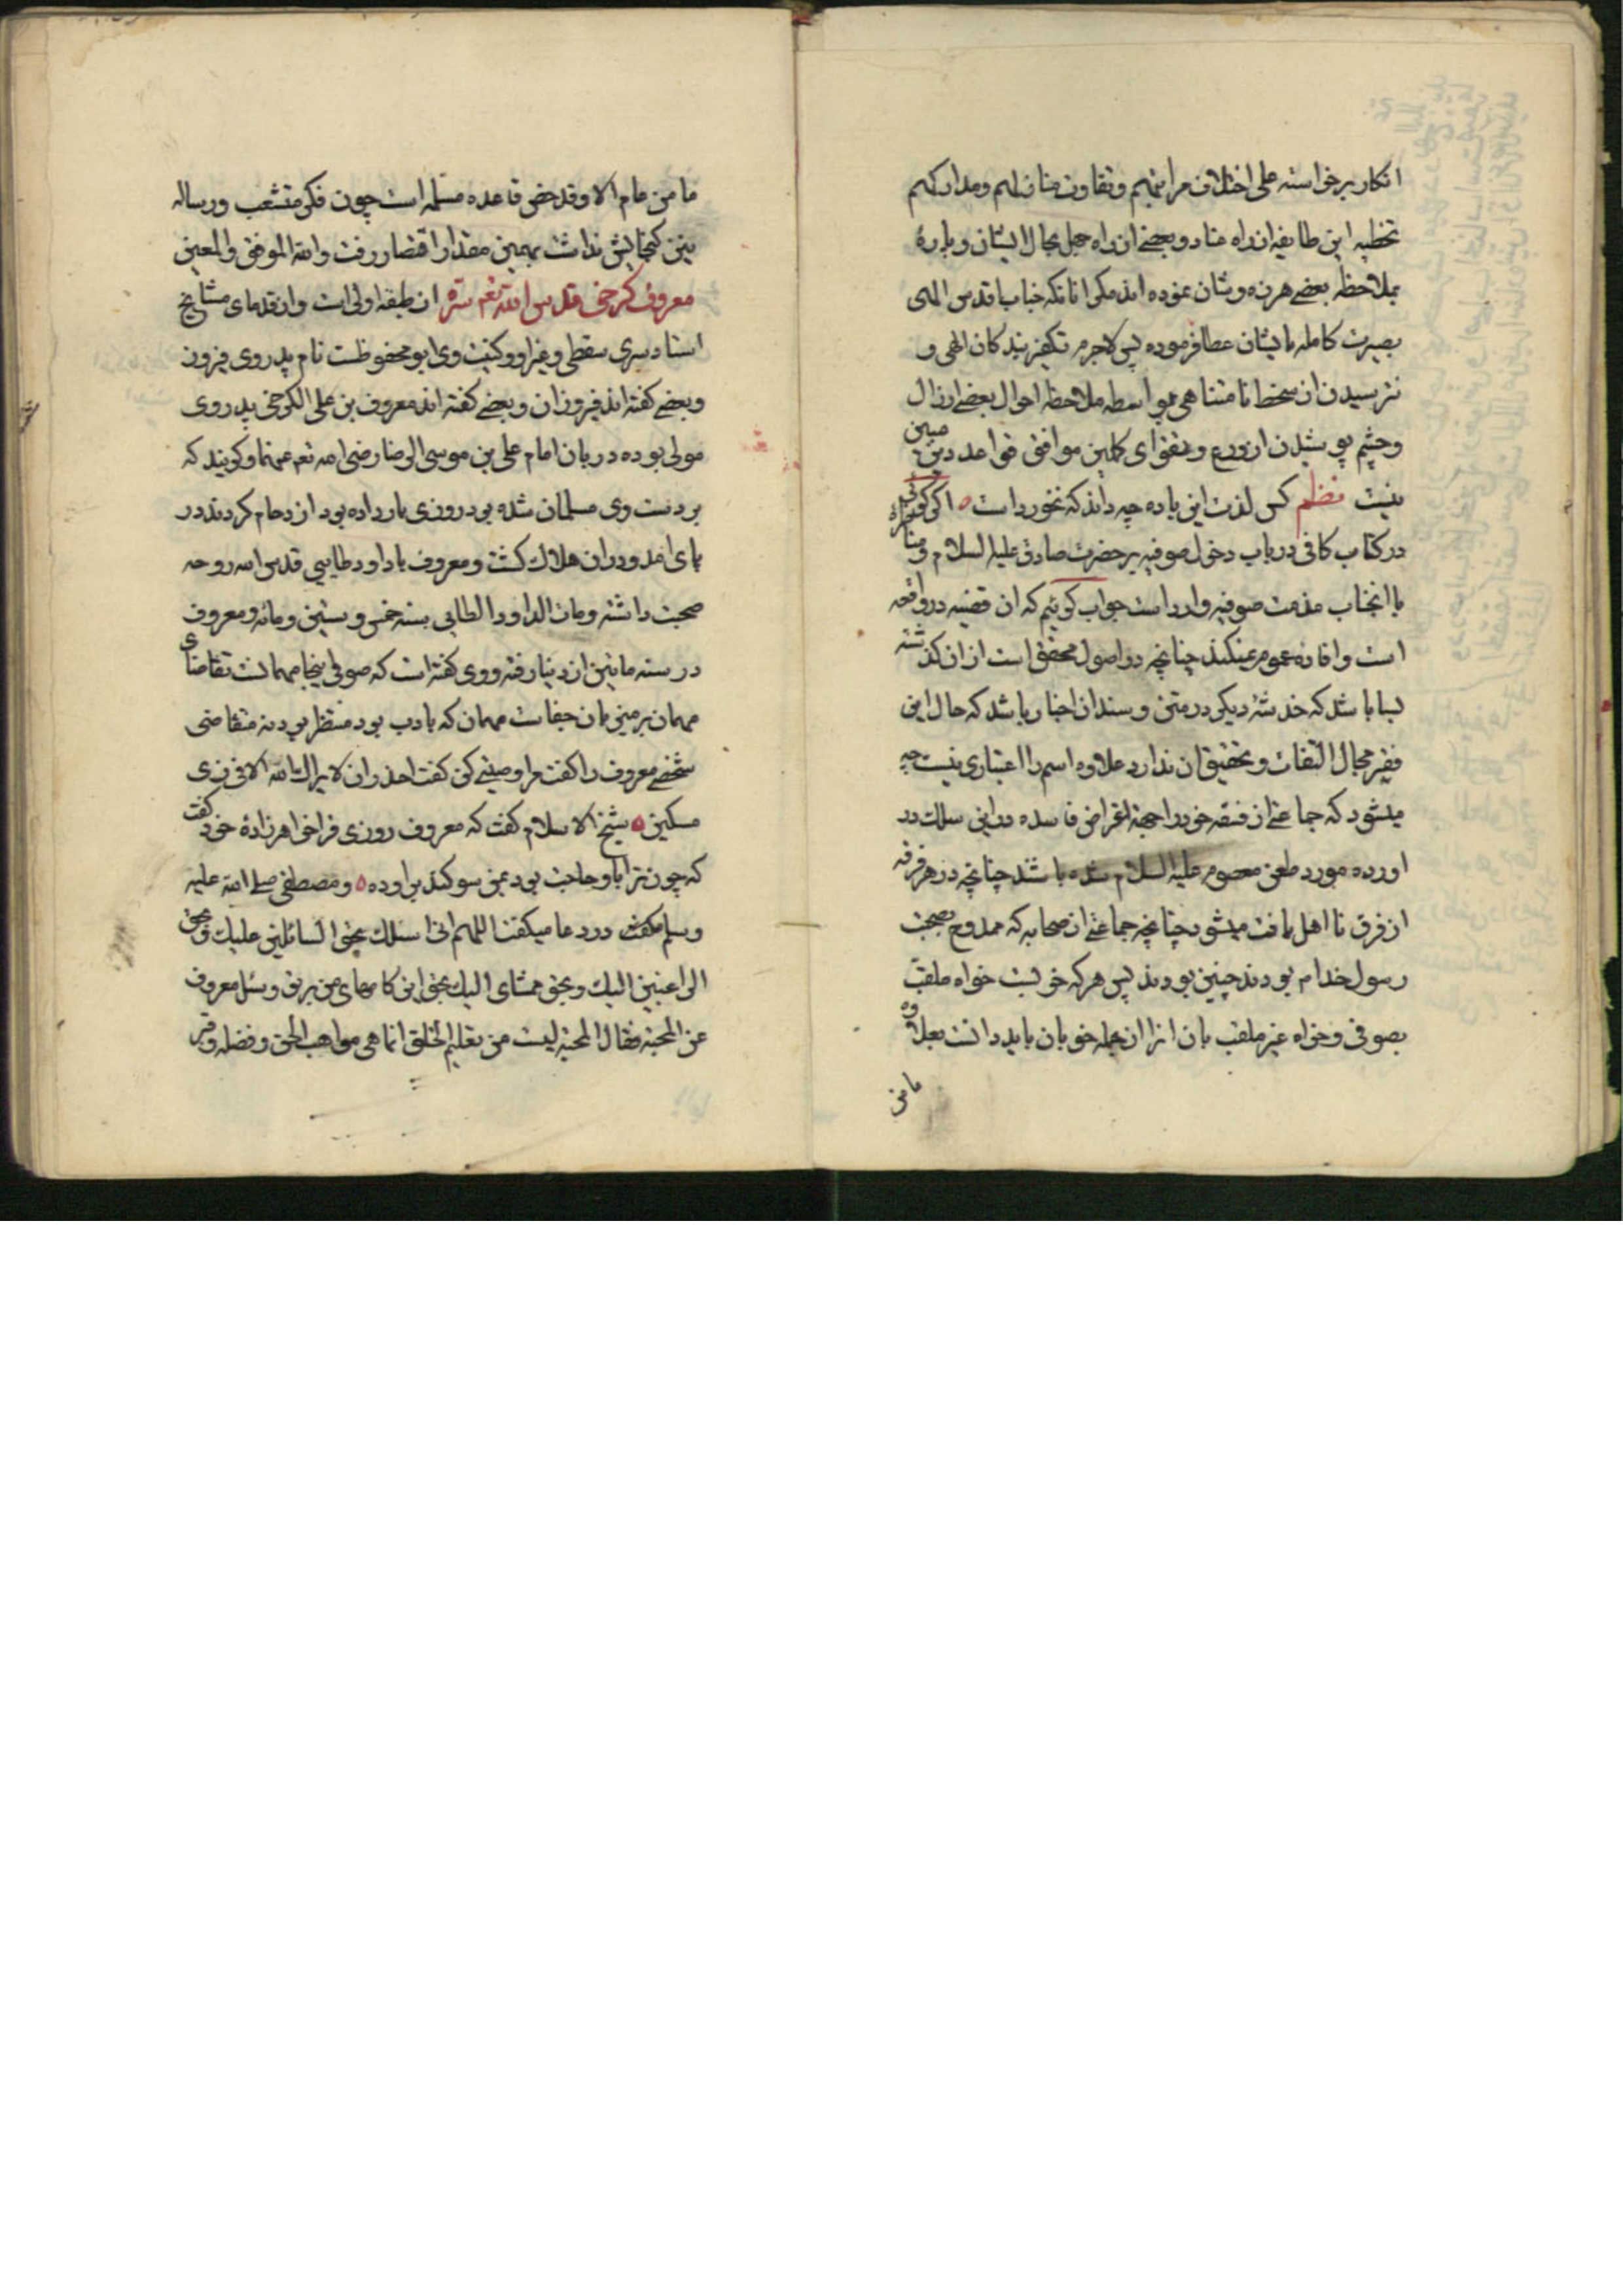 انکار برخواسته علی اختلاف مراتبهم وتفاوت منازلهم ومدارکهم
تخطیه این طایفه از راه عناد وبعضی از راه جهل بحال ایشان وپارهٔ
بملاحظه بعضی هرزه ومشان نموده اند مکر انانکه جناب اقدس الهی
بصیرت کامله بایشان عطا فرموده پس لاجرم تکفیر بندکان الهی و
نترسیدن از سخط نامتناهی بواسطه ملاحظه احوال بعضی ارزال
وچشم پوشیدن از ورع وتقوای کاملین موافق قواعد دین مبین
نیست نظم کس لذت این باده چه داند که نخورد است ه اکر کوئی
در کتاب کافی در باب دخول صوفیه بر حضرت صادق علیه السلام ومناظره
با انجناب مذمت صوفیه وارد است جواب کوئیم که ان قضیه در واقعه
است وافاده عموم نمیکند چنانچه در اصول محقق است از ان کذشته
بسا باشد که خدشهٔ دیکر در متن وسند ان اخبار باشد که حال این
فقیر مجال التفات وتحقیق ان ندارد علاوه اسم را اعتباری نیست چه
میشود که جماعتی از فسقه خود را بجهة اغراض فاسده در این سلک در
اورده مورد طعن معصوم علیه السلام شده باشند چنانچه در هر فرقه
از فرق نا اهل یافت میشود چنانچه جماعتی از صحابه که ممدوح بصحبت
رسول خدام بودند چنین بودند پس هر که خوبست خواه ملقب
بصوفی وخواه غیر ملقب بان انرا از جمله خوبان باید دانست بعلاوه
مامن
مامن عام الا وقد خص قاعده مسلمه است چون فکر متشعب ورساله
نیز کنجایش نداشت بهمین مقدار اقتصار رفت والله الموفق والمعین
معروف کرخی قدس الله تعم سره از طبقه اولی است واز قدمای مشایخ
استاد سری سقطی وغیر او وکنیت وی ابو محفوظست نام پدر وی فیروز
وبعضی کفته اند فیروزان وبعضی کفته اند معروف بن علی الکرخی پدر وی
مولی بوده دربان امام علی بن موسی الرضا رضی الله تعم عنهما وکویند که
بر دست وی مسلمان شده بود روزی بار داده بود ازدحام کردند در
پای امد ودران هلاک کشت ومعروف با داود طایی قدس الله روحه
صحبت داشته ومات الداود الطایی بسنه خمس وستین ومائه ومعروف
در سنه مأتین از دنیا رفته ووی کفته است که صوفی اینجا مهمانست تقاضای
مهمان بر میزبان جفاست مهمان که با ادب بود منتظر بود نه متقاضی
شخصی معروف را کفت مرا وصیتی کن کفت احذر ان لا یراک الله الا فی زی
مسکین ه شیخ الاسلام کفت که معروف روزی فرا خواهرزادهٔ خود کفت
که چون ترا باو حاجت بود بمن سوکند بر او ده ه ومصطفی صلی الله علیه
وسلم در دعا میکفت اللهم انی اسئلک بحق السائلین علیک وبحق
الراغبین الیک وبحق ممشای الیک بحق این کامهای من بر تو وسئل معروف
عن المحبة فقال المحبة لیست من تعلیم الخلق انما هی مواهب الحق وفضله وقبر